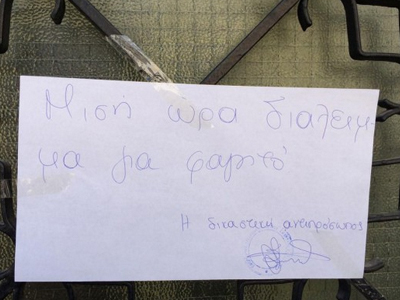 Μισή ώρα διάλειμ
μα για φαγητό
Η δικαστική αντιπρόσωπος